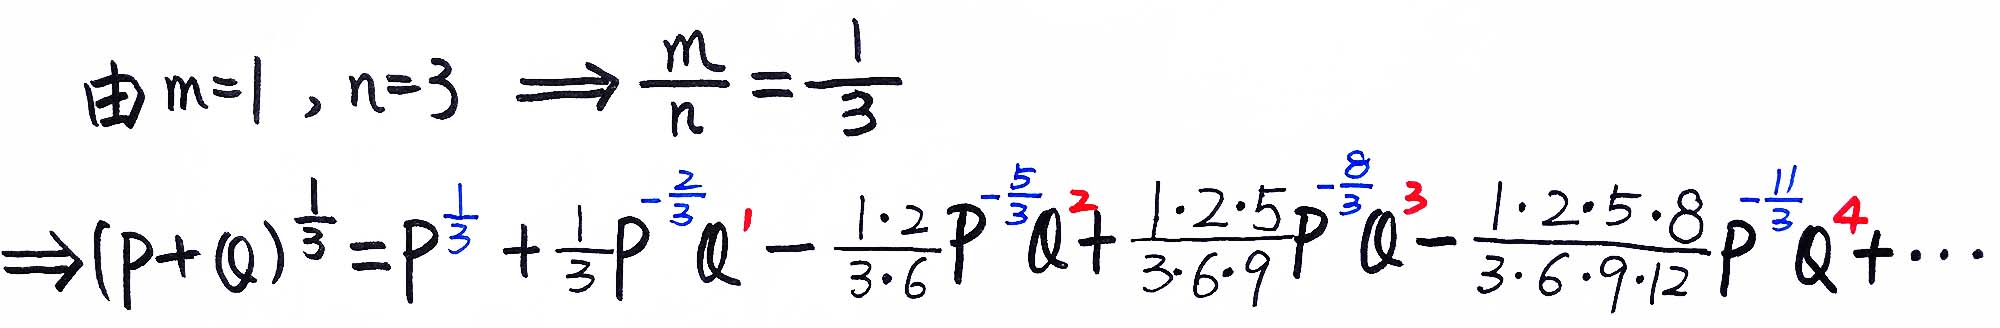 由 m=1 , n=3 ⟹ \frac{m}{n} = \frac{1}{3}
⟹ (P+Q)^{\frac{1}{3}} = P^{\frac{1}{3}} + \frac{1}{3} P^{-\frac{2}{3}} Q^{1} - \frac{1·2}{3·6} P^{-\frac{5}{3}} Q^{2} + \frac{1·2·5}{3·6·9} P^{-\frac{8}{3}} Q^{3} - \frac{1·2·5·8}{3·6·9·12} P^{-\frac{11}{3}} Q^{4} + ···